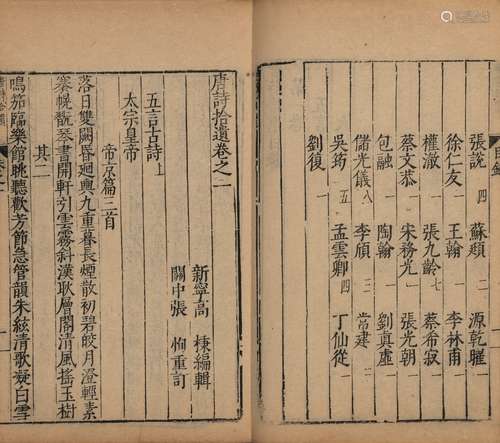 張說 四 蘇頲 二 源乾曜 一
徐仁友 一 王翰 一 李林甫 一
權澈 一 張九齡 七 蔡希寂 一
蔡文恭 一 宋務光 一 張光朝 一
包融 一 陶翰 一 劉眞虛 一
儲光儀 八 李頎 三 常建 一
吳筠 五 孟雲卿 四 丁仙從 一
劉復 一
唐詩拾遺卷之一
新寧高 棅編輯
關中張 恂重訂
五言古詩上
太宗皇帝
帝京篇三首
落日雙闕昏迴輿九重暮長煙散初碧皎月澄輕素
搴幌翫琴書開軒引雲霧斜漢耿層閣清風搖玉樹
其二
鳴笳臨樂館眺聽歡芳節急管韻朱絃清歌凝白雪